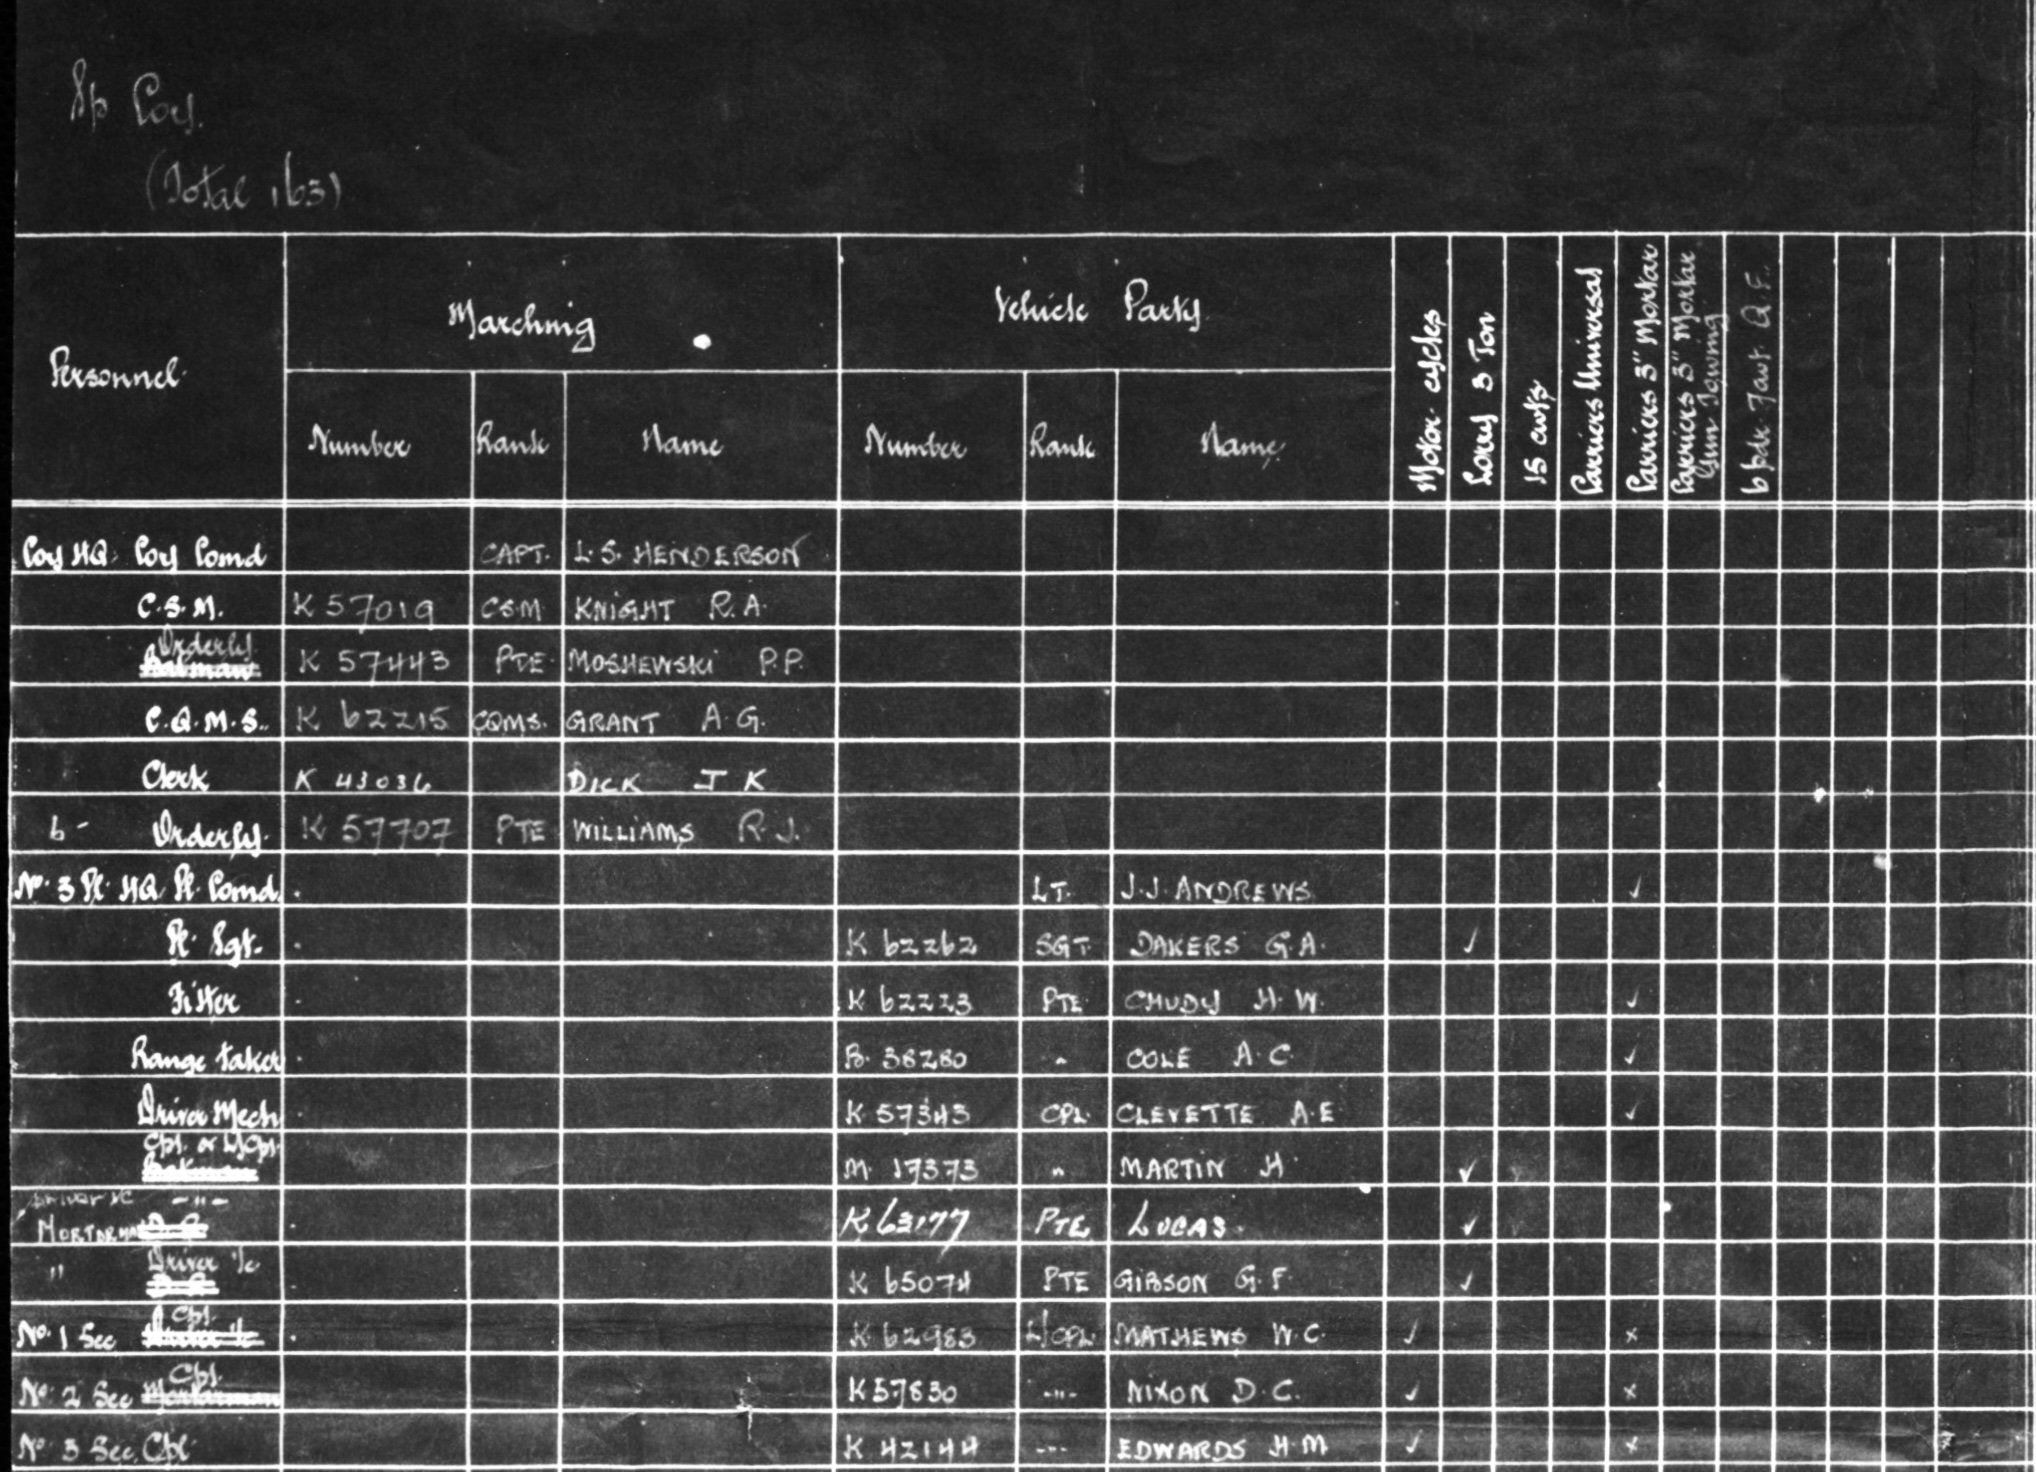 Sp Coy.
(Total 163)
Personnel.
Marching
Vehicle Party
Number Rank Name
Number Rank Name
Motor cycles
Lorry 3 Ton
15 cwts
Carriers Universal
Carriers 3" Mortar
Carriers 3" Mortar Gun Towing
6 pdr 7 cwt Q.F.
Coy HQ. Coy Comd CAPT. L.S. HENDERSON
C.S.M. K 57019 CSM KNIGHT R.A.
Orderly
Batman K 57443 PTE MOSHEWSKI P.P.
C.Q.M.S. K 62215 CQMS. GRANT A.G.
Clerk K 43036 DICK J K
6 - Orderly. K 57707 PTE WILLIAMS R.J.
No. 3 Pl. HQ Pl. Comd. LT. J.J. ANDREWS ✓
Pl. Sgt. K 62262 SGT DAKERS G.A. ✓
Fitter K 62223 PTE CHUDY H.W. ✓
Range taker B. 38280 " COLE A.C. ✓
Driver Mech K 57343 CPL CLEVETTE A.E ✓
Cpl. or L/Cpl.
Batman M. 17373 " MARTIN H ✓
DRIVER I/C -"-
MORTARMAN K 63177 PTE LUCAS. ✓
Driver I/c
" K 65074 PTE GIBSON G.F. ✓
Cpl.
No. 1 Sec Driver I/c K 62983 L/CPL MATHEWS W.C. ✓ x
Cpl.
No. 2 Sec Mortarman K57830 -"- NIXON D.C. ✓ x
No. 3 Sec. Cpl K 42144 -"- EDWARDS H.M ✓ x